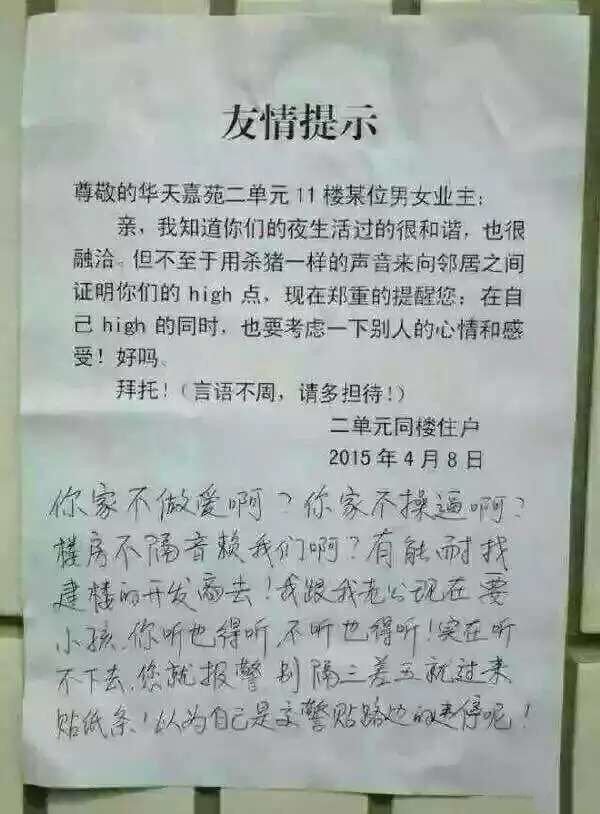 友情提示
尊敬的华天嘉苑二单元11楼某位男女业主：
亲，我知道你们的夜生活过的很和谐，也很
融洽。但不至于用杀猪一样的声音来向邻居之间
证明你们的 high 点，现在郑重的提醒您：在自
己 high 的同时，也要考虑一下别人的心情和感
受！好吗。
拜托！（言语不周，请多担待！）
二单元同楼住户
2015 年 4 月 8 日
你家不做爱啊？你家不操逼啊？
楼房不隔音赖我们啊？有能耐找
建楼的开发商去！我跟我老公现在要
小孩，你听也得听，不听也得听！实在听
不下去，您就报警别隔三差五就过来
贴纸条！以为自己是交警贴路边的违停呢！